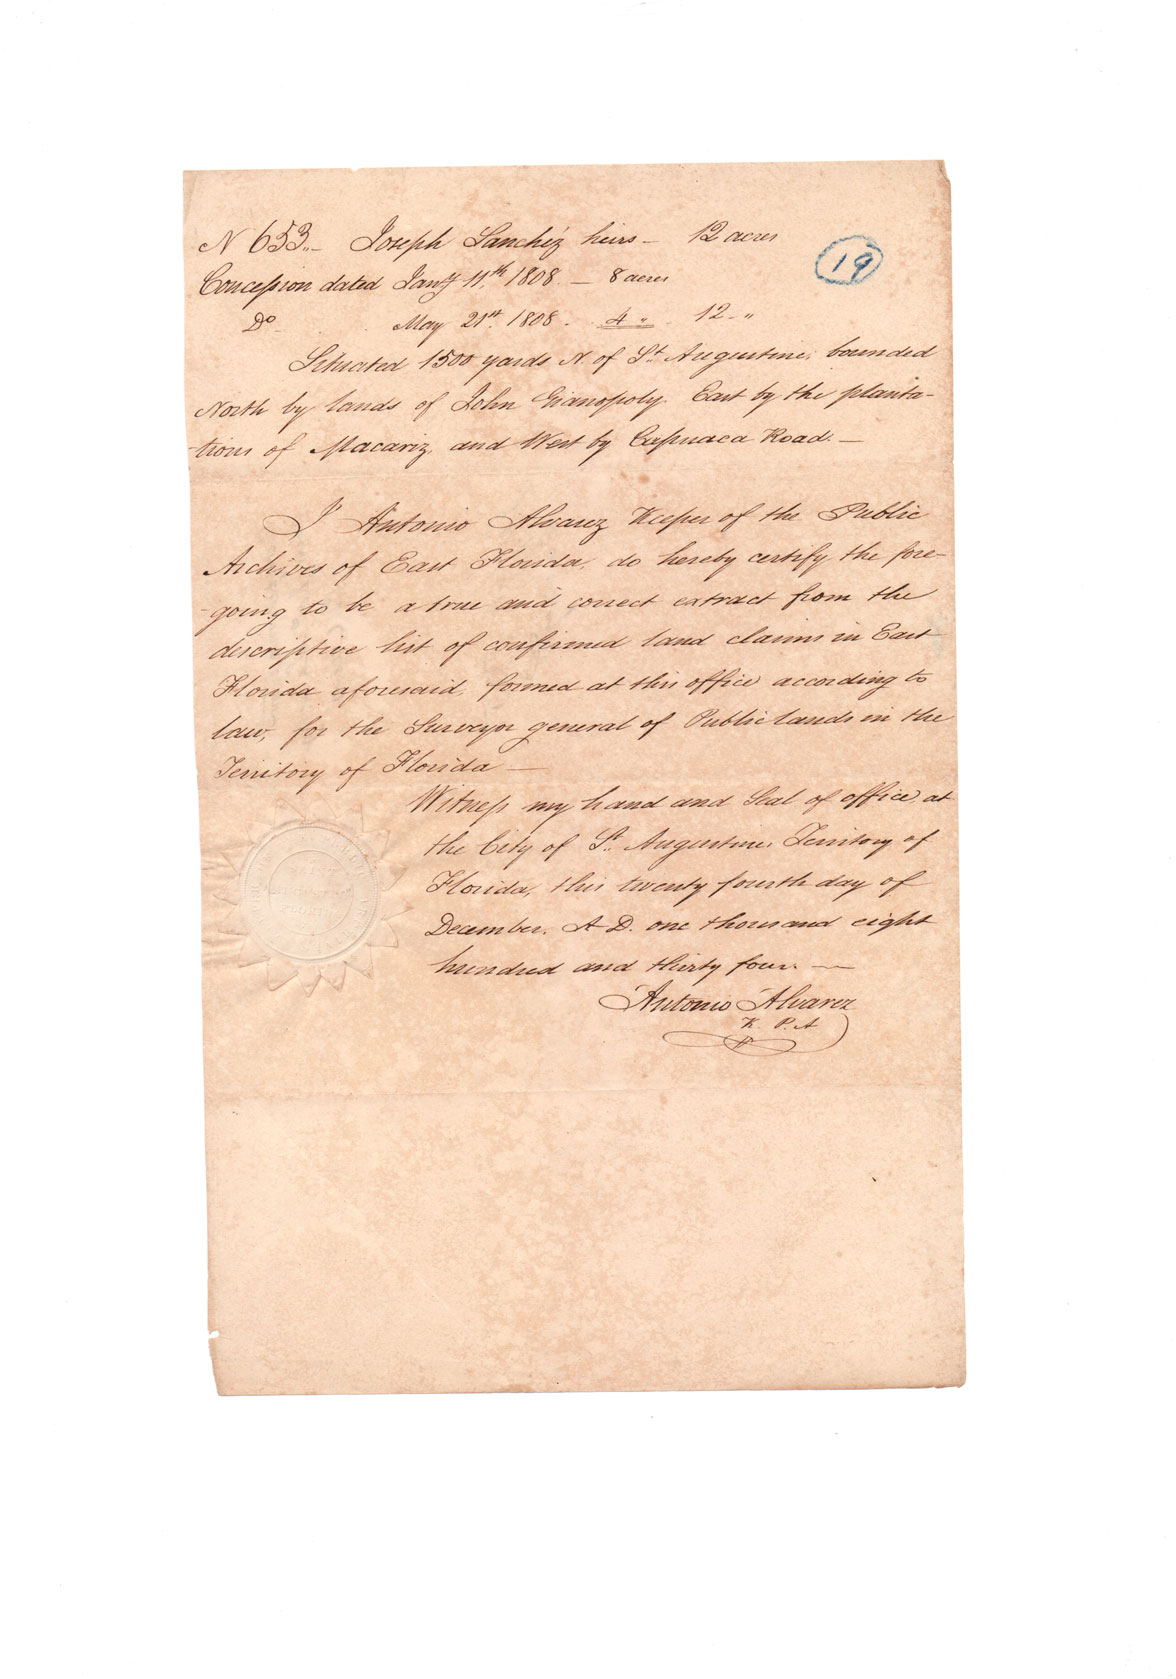 N 653.. Joseph Sanchéz heirs – 12 acres
19
Concession dated Jany 11th 1808 – 8 acres
Do May 21st 1808. 4 " 12 "
Situated 1500 yards N. of St. Augustine, bounded
North by lands of John Gianopoly, East by the planta-
-tions of Macariz, and West by Capuaca Road. –
I Antonio Alvarez Keeper of the Public
Archives of East Florida, do hereby certify the fore-
-going to be a true and correct extract from the
descriptive list of confirmed land claims in East
Florida aforesaid, formed at this office according to
law, for the Surveyor general of Public lands in the
Territory of Florida –
Witness my hand and Seal of office, at
the City of St. Augustine, Territory of
Florida, this twenty fourth day of
December, A.D. one thousand eight
hundred and thirty four. –
Antonio Alvarez
K. P. A